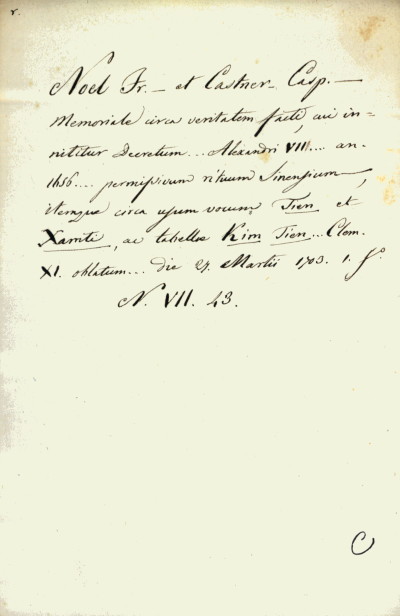 r.
Noel Fr. — et Castner — Casp. —
Memoriale circa veritatem facti, cui in-
nititur Decretum ... Alexandri VIII .... an.
1656 .... permissivum rituum Sinensium,
itemque circa usum vocum Tien et
Xamti, ac tabellae Kim Tien ... Clem.
XI. oblatum ... die 27. Martii 1703. 1. f.º
N. VII. 43.
C